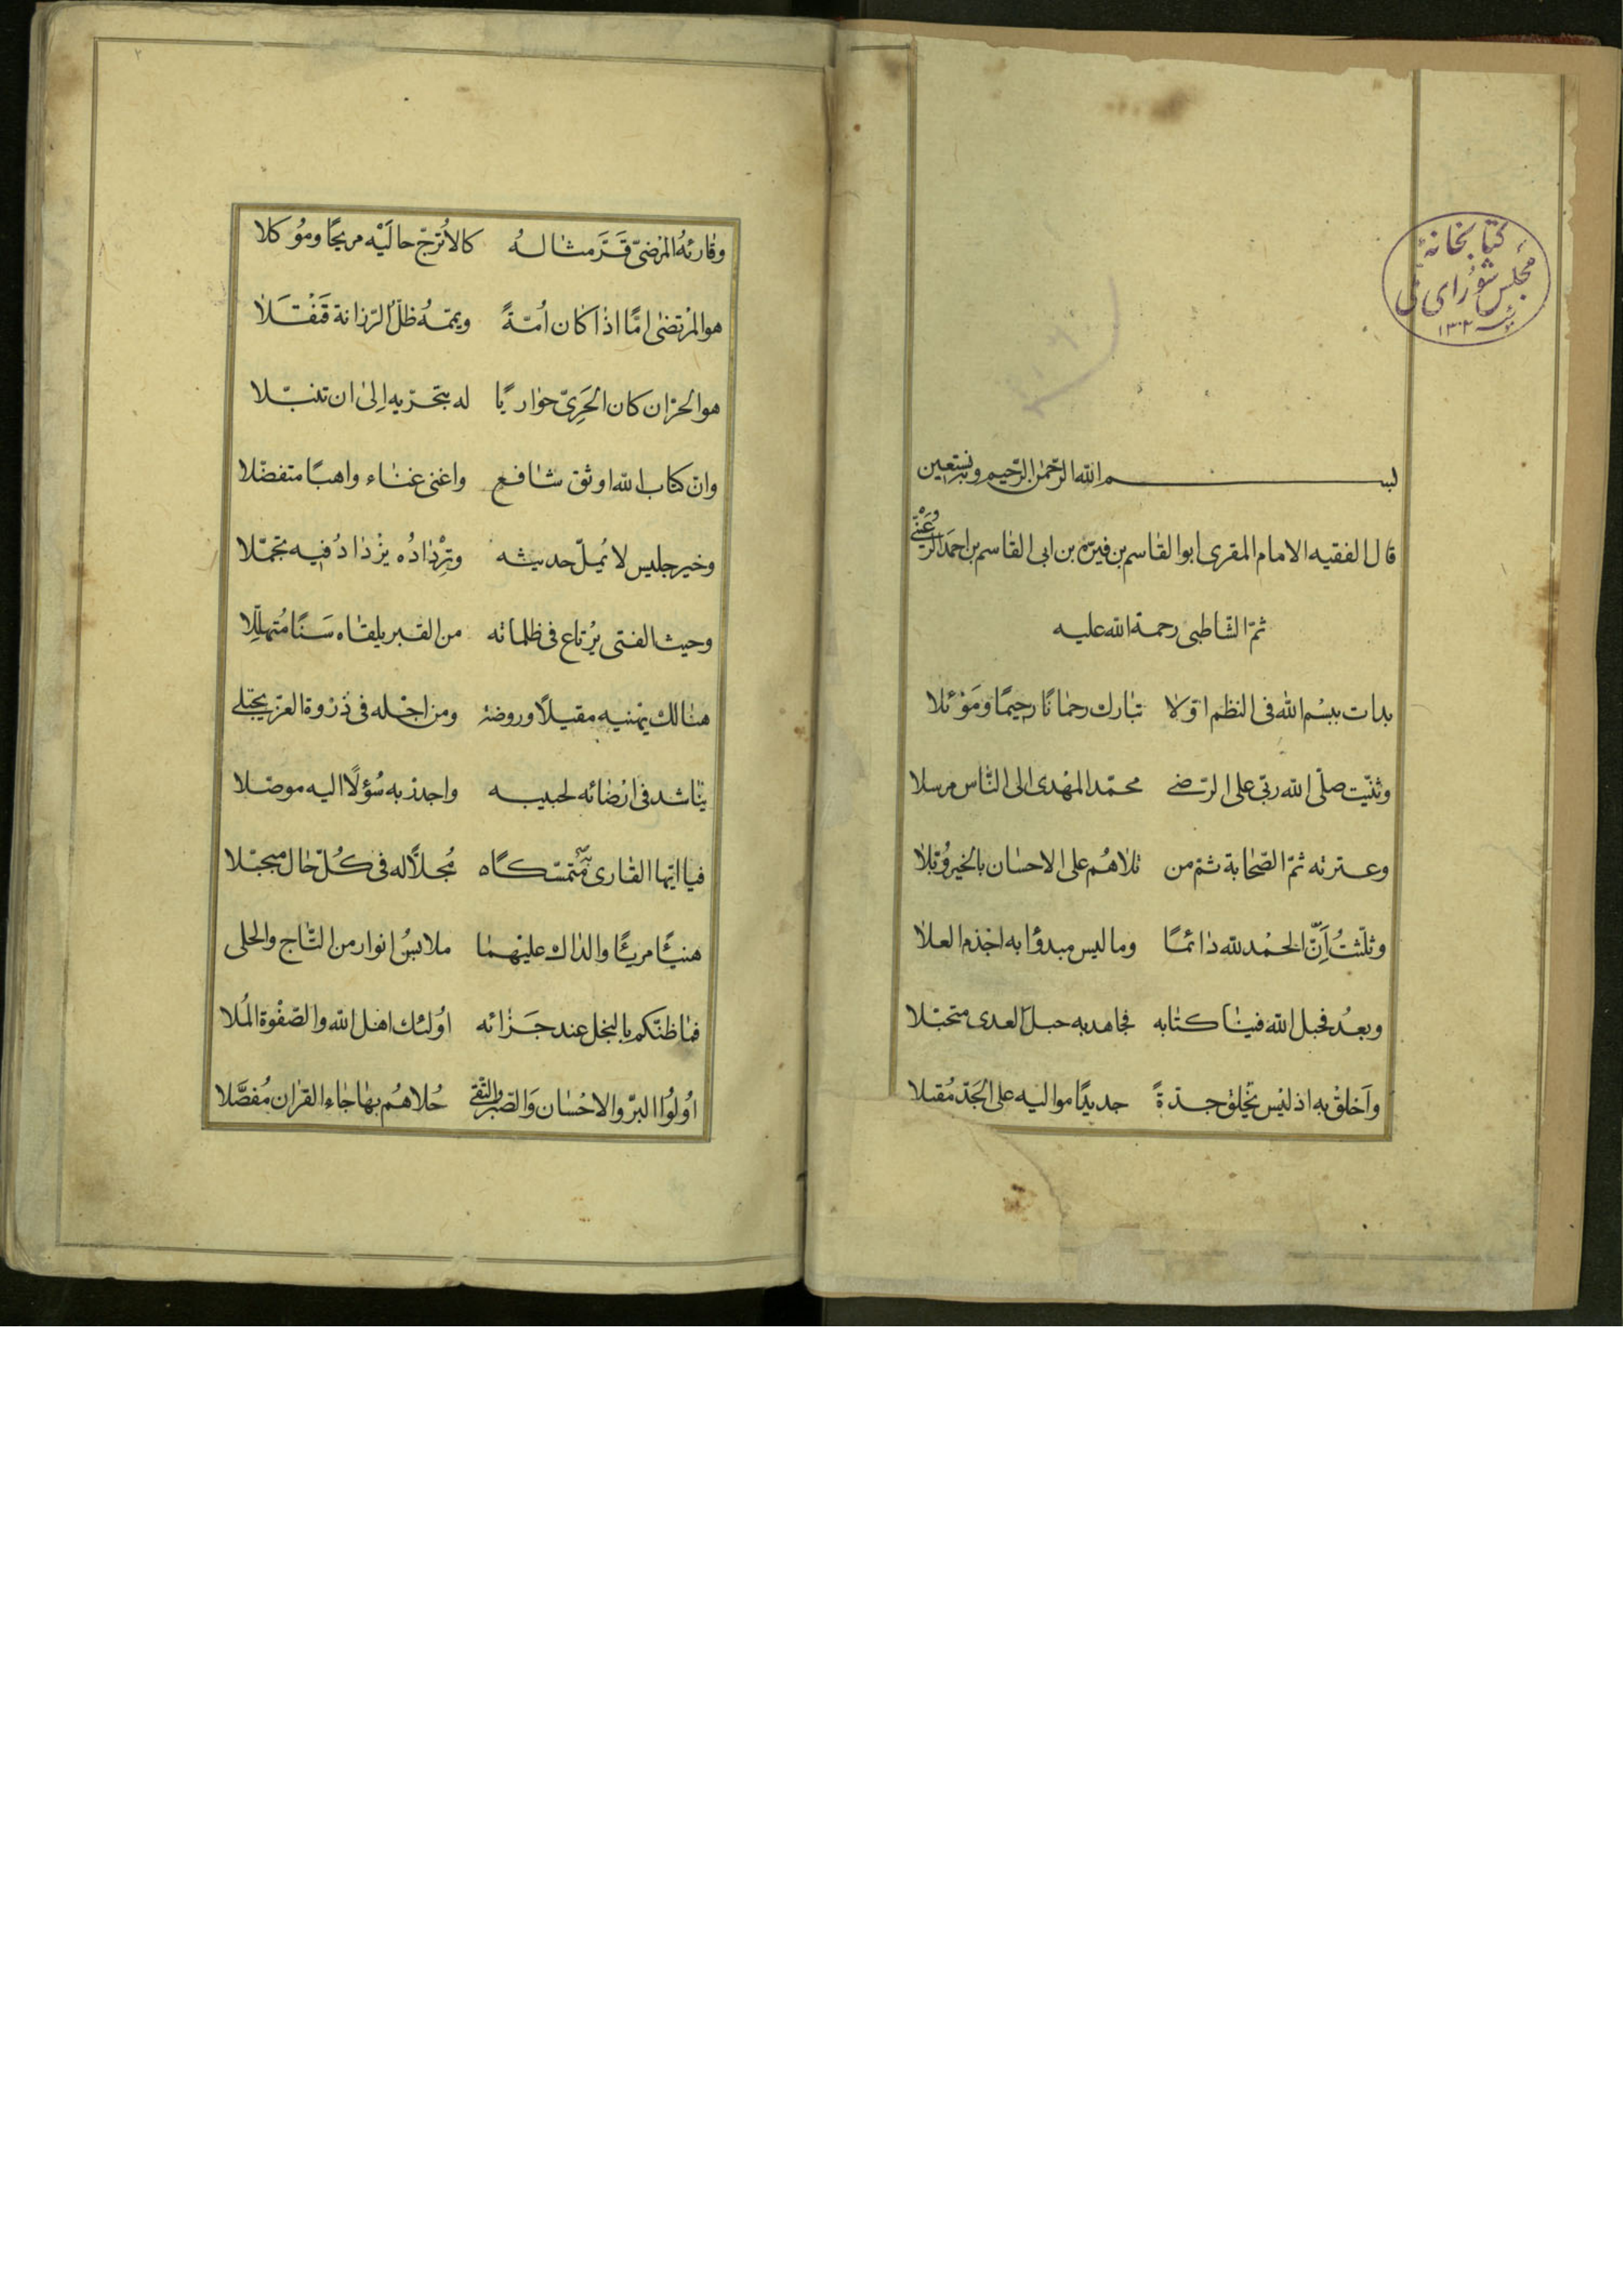 كتابخانهٔ
مجلس شورای ملی
١٣٠٢
بسم الله الرّحمن الرّحيم وبه نستعين
قال الفقيه الامام المقرى ابو القاسم بن فيرّه بن ابى القاسم بن احمد الرّعَيْنى
ثمّ الشّاطبى رحمة الله عليه
بدات ببسْم الله فى النظم اوّلا تبارك رحمانًا رحيمًا ومَوْئلا
وثنّيت صلّى الله ربّى على الرّضى محمّد المهْدى الى النّاس مرسلا
وعترته ثمّ الصّحابة ثمّ من تلاهُم على الاحسان بالخير وُبّلا
وثلّثتُ اَنّ الحمْد لله دائمًا وما ليس مبدؤا به اجْذم العلا
وبعدُ فحبل الله فينا كتابه فجاهد به حبل العدى متحبّلا
وَاَخلقْ به اذ ليْس يخْلق جدّةً جديدًا مواليه على الجَدّ مُقبلا
٢
وقارئهُ المرْضىّ قَرَّ مثالهُ كالاُترجّ حالَيْه مريحًا ومُوكلا
هو المرْتضى امًّا اذا كان اُمّةً ويمّمهُ ظلّ الرّزانة قَنْقَلا
هو الحرّ ان كان الحَرِىّ حواريًا له بتحرّيه اِلى ان تنبّلا
وانّ كتاب الله اوثق شافع واغنى غناء واهبًا متفضّلا
وخير جليس لا يُملّ حديثه وتِرْدادُه يزْدادُ فيه تجمّلا
وحيث الفتى يرْتاع فى ظلماته من القبر يلقاه سَنًا مُتهلّلِا
هنالك يهْنيه مقيلًا وروضة ومن اجْله فى ذرْوة العزّ يجتلى
يناشد فى ارْضائه لحبيبه واجدر به سُؤلًا اليه موصّلا
فيا ايّها القارى به متمسّكًا مُجلًّا له فى كُلّ حال مبجّلا
هنئًا مرئًا والداك عليْهما ملابسُ انوار من التّاج والحلى
فما ظنّكم بالنجل عند جَزائه اوُلئك اهْل الله والصّفْوة المَلا
اُولُوا البرّ والاحْسان وَالصّبر والتّقى حُلاهُم بها جاء القران مُفصَّلا